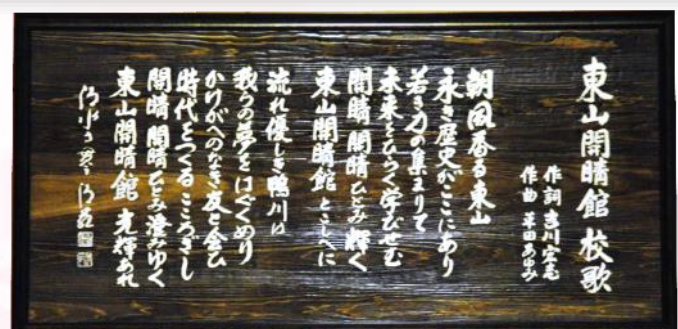 東山開睛館 校歌
作詞 吉川宏志
作曲 あゆみ
朝風香る東山
永き歴史がここにあり
若き力の集まりて
未来をひらく学びせむ
開睛 開睛 ひとみ輝く
東山開睛館 とこしへに
流れ優しき鴨川は
我らの夢をはぐくめり
かけがへのなき友と会ひ
時代をつくる こころざし
開睛 開睛 ひとみ澄みゆく
東山開睛館 光輝あれ